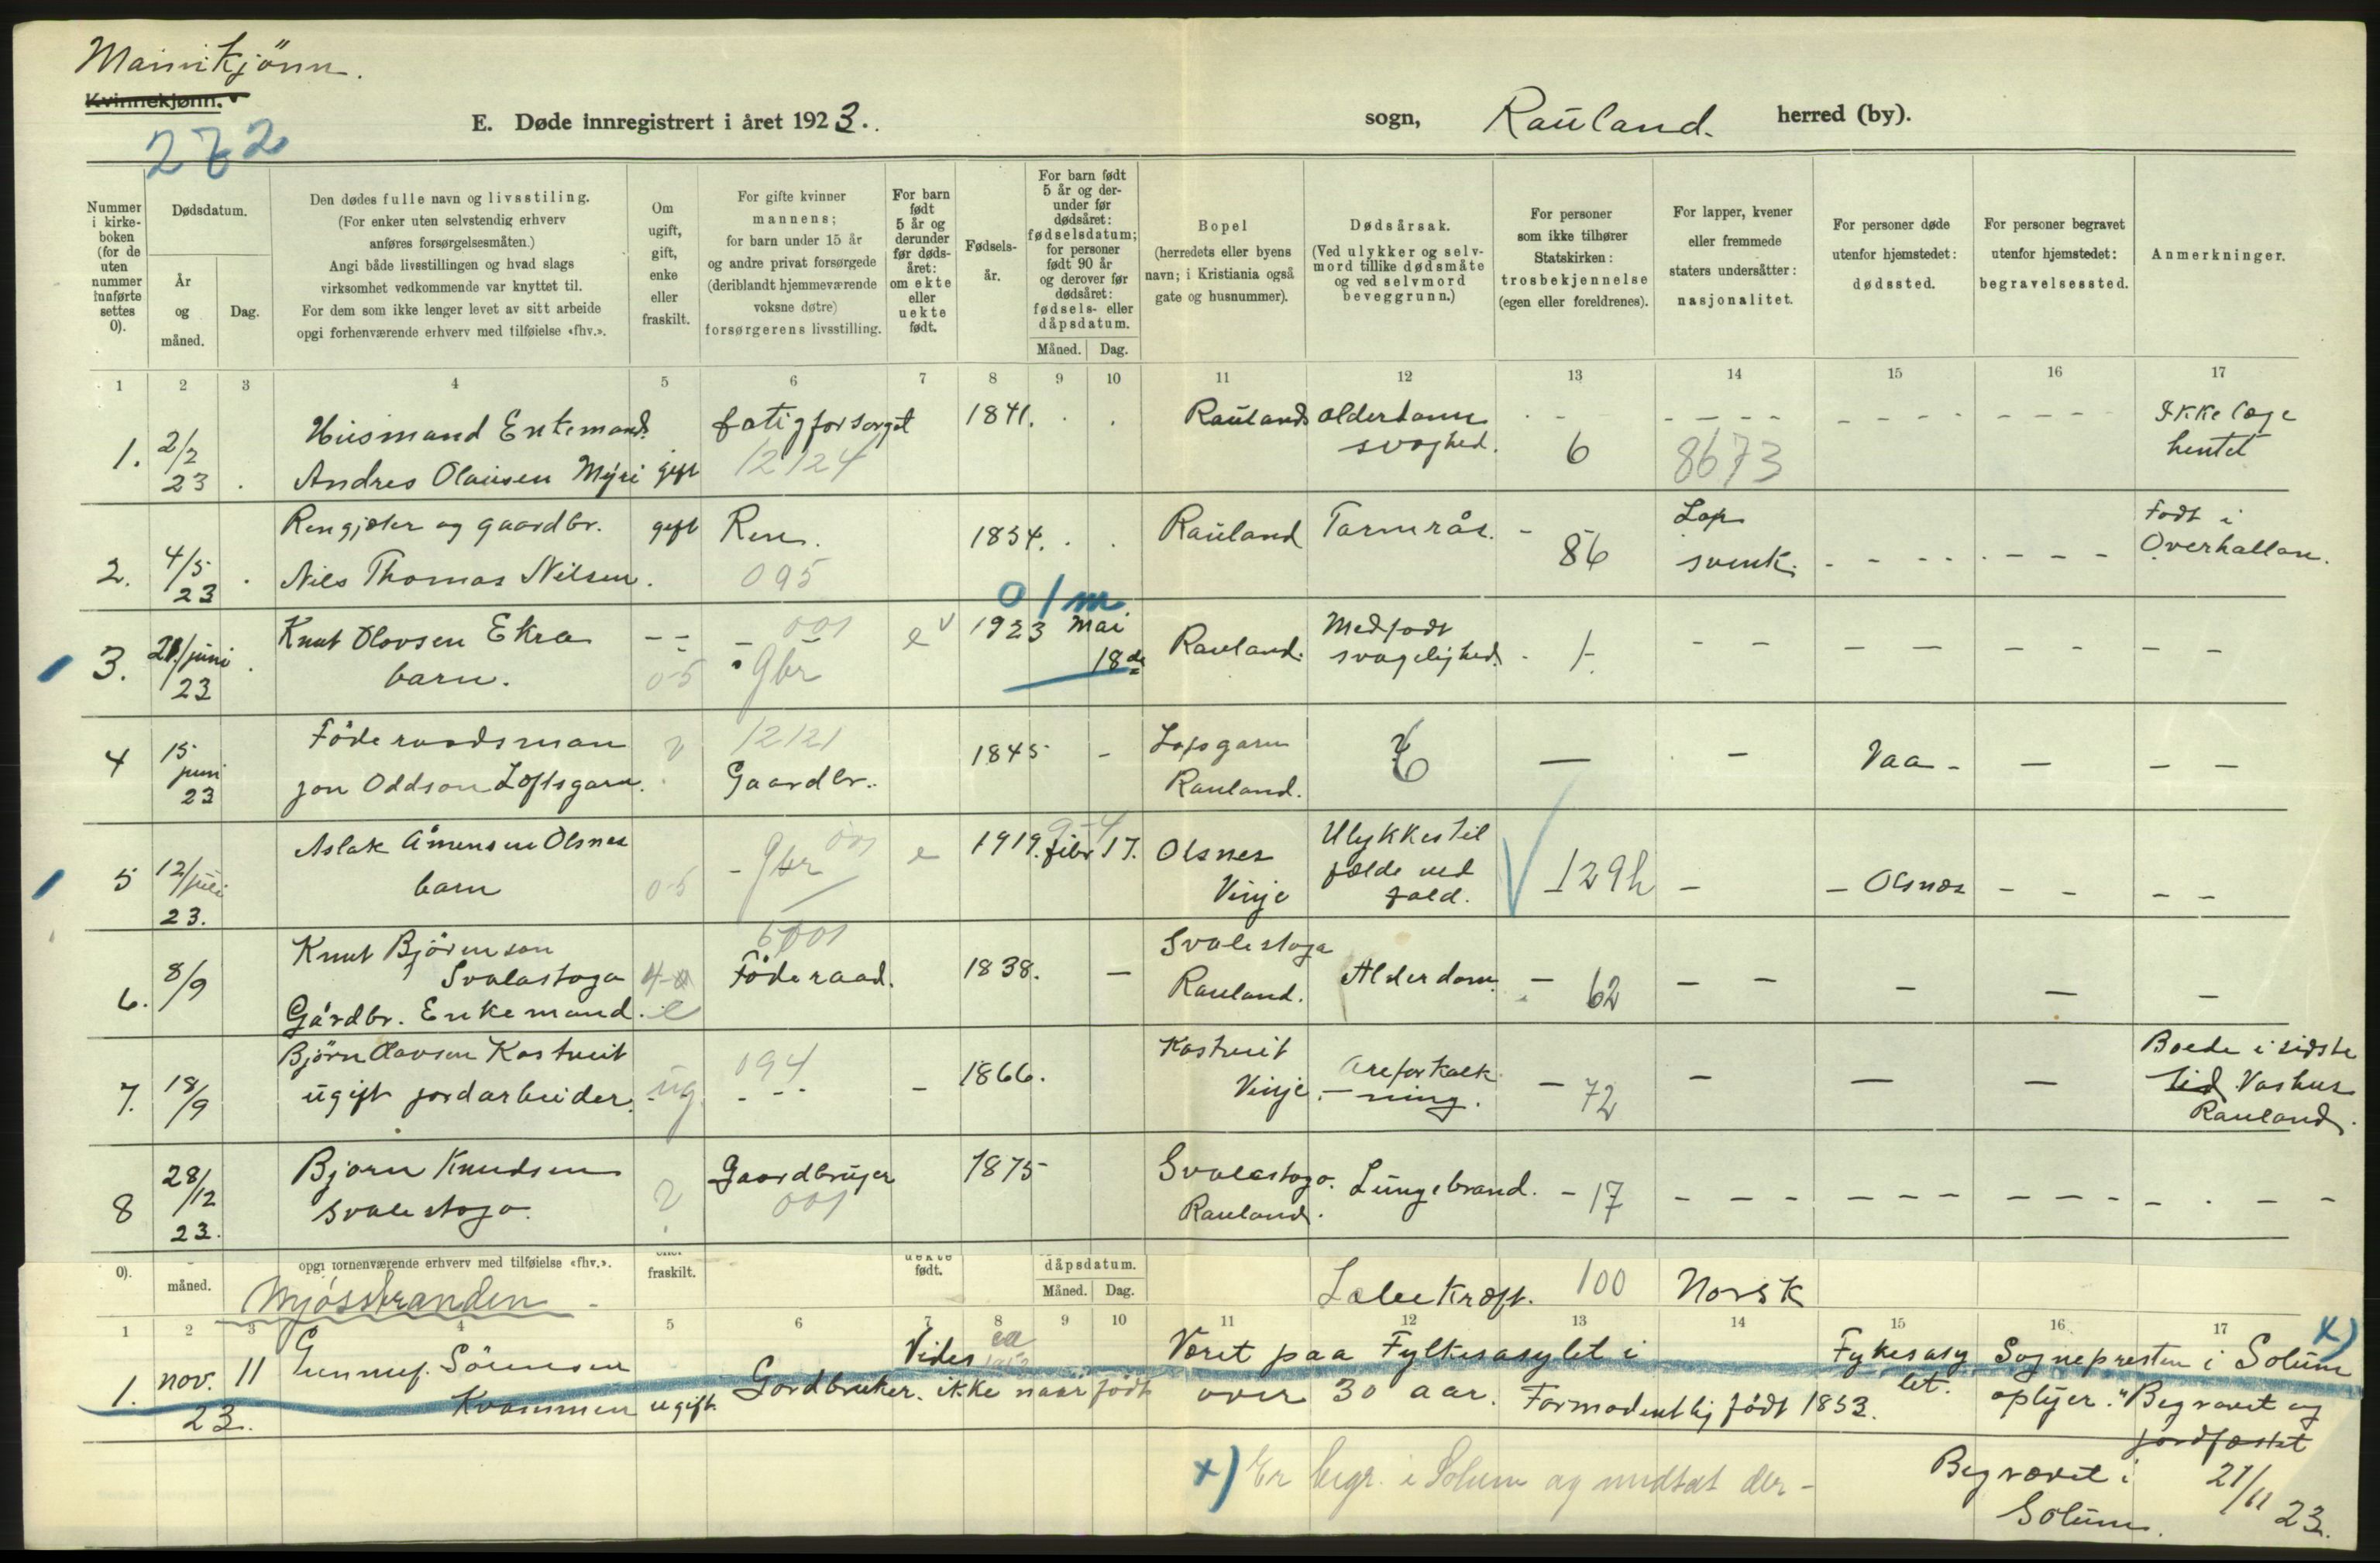 Mannkjönn.
Kvinnekjønn.
272
E. Døde innregistrert i året 1923.
sogn, Rauland. herred (by).
Nummer i kirke-boken (for de uten nummer innførte settes 0).
Dødsdatum.
År og måned.
Dag.
Den dødes fulle navn og livsstiling.
(For enker uten selvstendig erhverv
anføres forsørgelsesmåten.)
Angi både livsstillingen og hvad slags
virksomhet vedkommende var knyttet til.
For dem som ikke lenger levet av sitt arbeide
opgi forhenværende erhverv med tilføielse «fhv.».
Om ugift, gift, enke eller fraskilt.
For gifte kvinner
mannens;
for barn under 15 år
og andre privat forsørgede
(deriblandt hjemmeværende
voksne døtre)
forsørgerens livsstilling.
For barn født 5 år og derunder før døds-året: om ekte eller uekte født.
Fødsels-år.
For barn født
5 år og der-
under før
dødsåret:
fødselsdatum;
for personer
født 90 år
og derover før
dødsåret:
fødsels- eller
dåpsdatum.
Måned. Dag.
Bopel
(herredets eller byens
navn; i Kristiania også
gate og husnummer).
Dødsårsak.
(Ved ulykker og selv-
mord tillike dødsmåte
og ved selvmord
beveggrunn.)
For personer
som ikke tilhører
Statskirken:
trosbekjennelse
(egen eller foreldrenes).
For lapper, kvener
eller fremmede
staters undersåtter:
nasjonalitet.
For personer døde
utenfor hjemstedet:
dødssted.
For personer begravet
utenfor hjemstedet:
begravelsessted.
Anmerkninger.
1 2 3 4 5 6 7 8 9 10 11 12 13 14 15 16 17
1. 2/2 23. Husmand Enkemand fatigforsørget 1841. Rauland alderdoms svaghed. 6 8673 Ikke læge hentet
Andres Olausen Myri gift 12124
2. 4/5 23. Rengjæter og gaardbr. gift Ren. 1854. Rauland Tarmrås. - 86 Lap svensk. Født i Overhallan.
Nils Thomas Nilsen. 095
0 1 m
3. 21/juni 23 Knut Olovsen Ekra -- 001 e v 1923 Mai 18de Rauland. Medfødt svagelighed. 1
barn. 05 gbr
4 15 juni 23 Föderaadsman 12121 1845 - Lofsgarn Rauland. — - Vaa - — — —
Jon Oddson Loftsgarn. Gaardbr.
5 12/juli 23. Aslak Åmensen Olsnes - gbr 001 e 1919. febr 17. Olsnes Vinje Ulykkestilfælde ved fald. 129h - - Olsnes - - - -
barn 05
6. 8/9 Knut Björnson Svalastoga Gårdbr. Enkemand. e Föderaad. 1838. — Svalestoga Rauland. Alderdom. - 62
7. 18/9 Björn Olavsen Kostveit 094 - 1866. Kostveit Vinje. Areforkalkning. - 72 Boede i sidste tid Vashus Rauland.
ugift jordarbeider. ug
8 28/12 23. Bjørn Knudsen Svalestoga. Gaardbruger 001 1875 Svalestoga. Rauland. Lungebrand. - 17
0). måned. opgi forhenværende erhverv med tilføielse «fhv.». eller fraskilt. uekte født. dåpsdatum. Måned. Dag.
Mjösstranden Kræft. 100 Norsk
1 2 3 4 5 6 7 8 9 10 11 12 13 14 15 16 17
1. nov. 23. 11 Gunnuf. Sörensen Kvammen ugift. Gardbruker. Vides ikke naar födt
ca
Været paa Fylkesasylet i
over 30 aar. Formodentlig födt 1853.
Fykesasylet.
Sognepresten i Solum x)
oplyser: "Begravet og
jordfæstet
Begravet i Solum. 21/11 23.
x) Er begr. i Solum og medtat der -